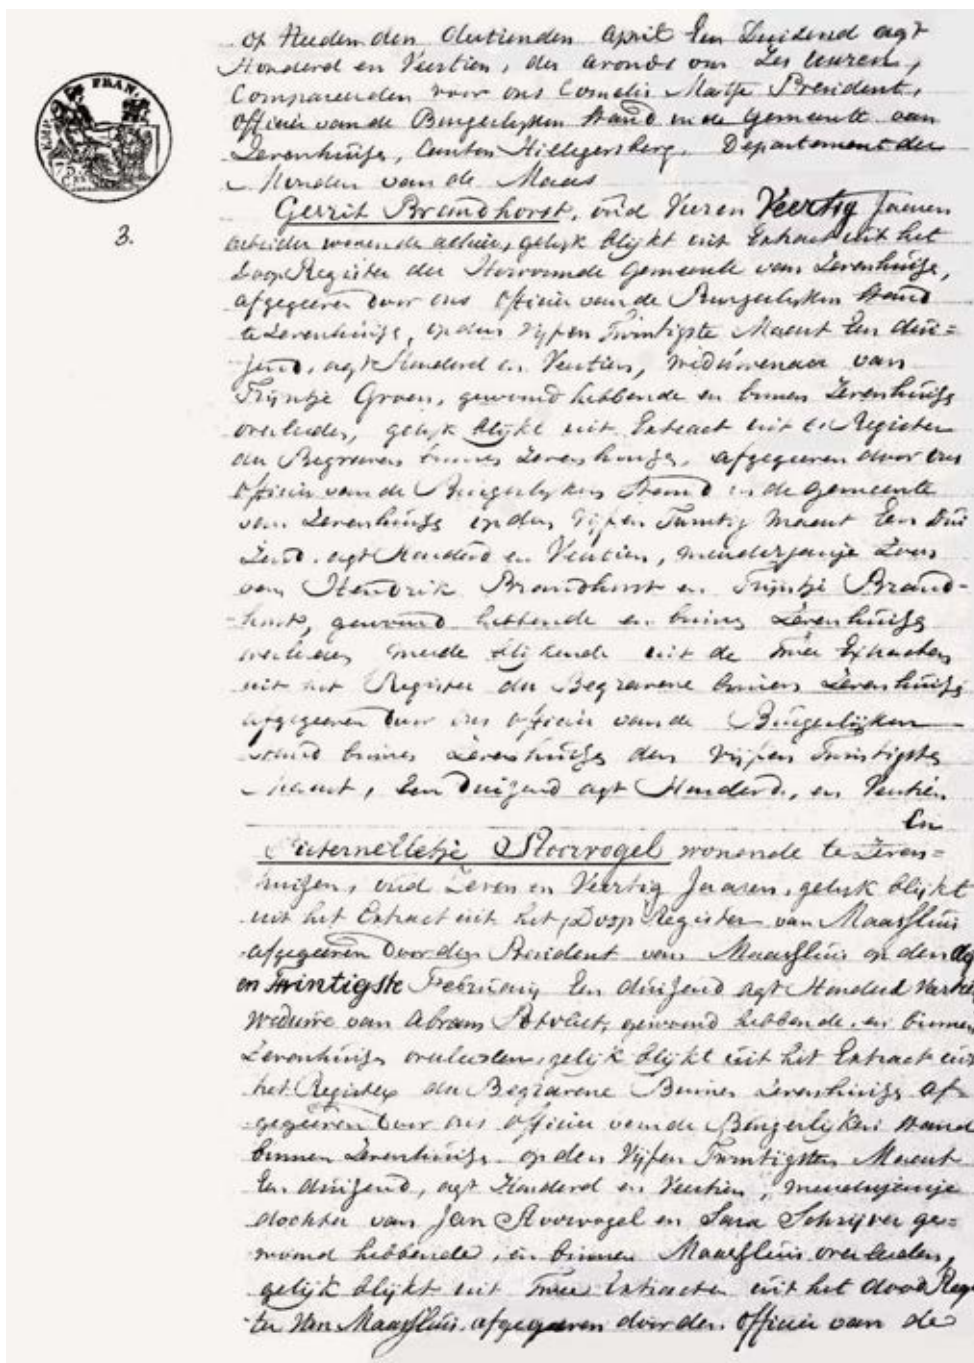 Op Heden den dertienden April Een Duizend agt
Honderd en Veertien, des avonds om Zes uuren,
Compareerden voor ons Cornelis President,
Officier van de Burgerlyken Stand in de Gemeente van
Zevenhuijse, Canton Hillegersberg, Departement der
Monden van de Maas
EMP. FRAN.
Gerrit Brandhorst, oud Veertig Jaaren
3.
arbeider wonende alhier, gelyk blijkt uit Extract uit het
Doop Register der Hervormde Gemeente van Zevenhuijse,
afgegeeven door ons Officier van de Burgerlyken Stand
te Zevenhuijse, op den Vijf en Twintigste Maart Een dui=
zend, agt Honderd en Veertien, Weduwenaar van
Trijntje Groen, gewoond hebbende en binnen Zevenhuijse
overleeden, gelijk blijkt uit Extract uit de Register
der Begraven binnen Zevenhuijse, afgegeeven door ons
Officier van de Burgerlyken Stand in de Gemeente
van Zevenhuijse op den Vijf en Twintig Maart Een Dui
Zend, agt Honderd en Veertien, meerderjarige Zoon
van Hendrik Brandhorst en Trijntje Brand-
horst, gewoond hebbende en binnen Zevenhuijse
overleeden meede blijkende uit de twee Extracten
uit het Register der Begravene binnen Zevenhuijse
afgegeeven door ons officier van de Burgerlijken
stand binnen Zevenhuijse den Vijf en Twintigste
Maart, Een Duizend agt Honderd, en Veertien
En
Pieternelletje Stoorvogel wonende te Zeven=
huijzen, oud Zeven en Veertig Jaaren, gelyk blijkt
uit het Extract uit het Doop Register van Maassluis
afgegeeven door den President van Maassluis op den
en Twintigste February Een duizend agt Honderd
Weduwe van Abram gewoond hebbende en binnen
Zevenhuijse overleeden, gelijk blijkt uit het Extract uit
het Register der Begravene Binnen Zevenhuijse af=
gegeeven Door ons officier van de Burgerlijken stand
binnen Zevenhuijse op den Vijf en Twintigsten Maart
Een duizend, agt Honderd en Veertien, meerderjarige
dochter van Jan Stoorvogel en Sara Schrijver ge=
woond hebbende, en binnen Maassluis overleeden,
gelijk blijkt uit Twee Extracten uit het dood Regis
ter Van Maassluis afgegeeven door den Officier van de